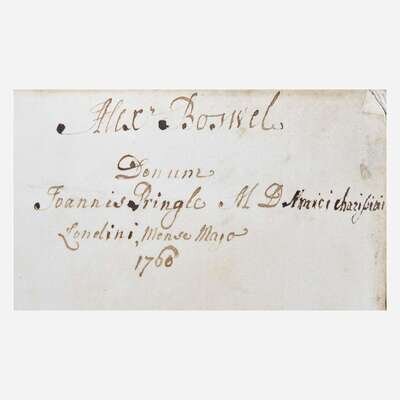 Alexr Boswel
Donum
Joannis Pringle M D Amici charissimi
Londini, Mense Majo
1760